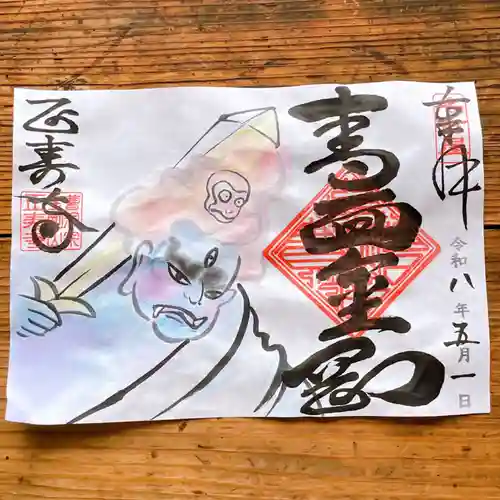 奉拝
令和八年五月一日
青面金剛
正寿寺